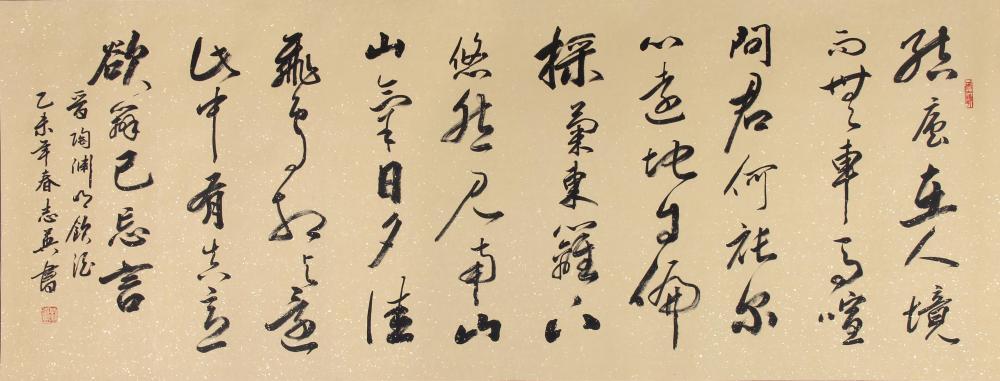 结庐在人境
而无车马喧
问君何能尔
心远地自偏
采菊东篱下
悠然见南山
山气日夕佳
飞鸟相与还
此中有真意
欲辩已忘言
晋陶渊明饮酒
乙未年春志英书